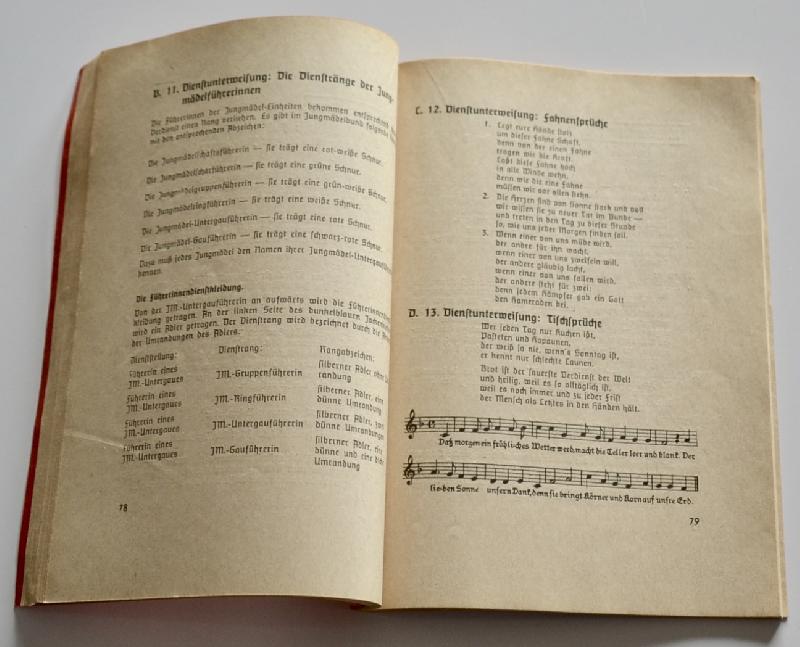 B. 11. Dienstunterweisung: Die Dienstränge der Jung-
mädelführerinnen
Die Führerinnen der Jungmädel-Einheiten bekommen entsprechend
Verdienst einen Rang verliehen. Es gibt im Jungmädelbund folgende
mit den entsprechenden Abzeichen:
Die Jungmädelschaftsführerin — sie trägt eine rot-weiße Schnur.
Die Jungmädelscharführerin — sie trägt eine grüne Schnur.
Die Jungmädelgruppenführerin — sie trägt eine grün-weiße Schnur.
Die Jungmädelringführerin — sie trägt eine weiße Schnur.
Die Jungmädel-Untergauführerin — sie trägt eine rote Schnur.
Die Jungmädel-Gauführerin — sie trägt eine schwarz-rote Schnur.
Dazu muß jedes Jungmädel den Namen ihrer Jungmädel-Untergauführerin
kennen.
Die Führerinnendienstkleidung.
Von der JM.-Untergauführerin an aufwärts wird die Führerinnen
kleidung getragen. An der linken Seite des dunkelblauen
wird ein Adler getragen. Der Dienstrang wird bezeichnet durch die
der Umrandungen des Adlers.
Dienststellung: Dienstrang: Rangabzeichen:
Führerin eines JM.-Gruppenführerin silberner Adler ohne
JM.-Untergaues randung
Führerin eines JM.-Ringführerin silberner Adler, eine
JM.-Untergaues dünne Umrandung
Führerin eines JM.-Untergauführerin silberner Adler, zwei
JM.-Untergaues dünne Umrandungen
Führerin eines JM.-Gauführerin silberner Adler, eine
JM.-Untergaues dünne und eine dicke
Umrandung
78
C. 12. Dienstunterweisung: Fahnensprüche
1. Legt eure Hände fest
um dieser Fahne Schaft,
denn von der einen Fahne
tragen wir die Kraft.
Laßt diese Fahne hoch
in alle Winde wehn,
denn wie die eine Fahne
müssen wir vor allen stehn.
2. Die Herzen sind von Sonne stark und voll
wir wissen sie zu neuer Tat im Bunde —
und treten in den Tag zu dieser Stunde
so, wie uns jeder Morgen finden soll.
3. Wenn einer von uns müde wird,
der andre für ihn wacht,
wenn einer von uns zweifeln will,
der andre gläubig lacht,
wenn einer von uns fallen wird,
der andere steht für zwei
denn jedem Kämpfer gab ein Gott
den Kameraden bei.
D. 13. Dienstunterweisung: Tischsprüche
Wer jeden Tag nur Kuchen ißt,
Pasteten und Kapaunen,
der weiß ja nie, wenn's Sonntag ist,
er kennt nur schlechte Launen.
Brot ist der sauerste Verdienst der Welt
und heilig, weil es so alltäglich ist,
weil es noch immer und zu jeder Frist
der Mensch als Letztes in den Händen hält.
Daß morgen ein fröhliches Wetter werd, macht die Teller leer und blank. Der
lieben Sonne unsern Dank, denn sie bringt Körner und Korn auf unsre Erd.
79